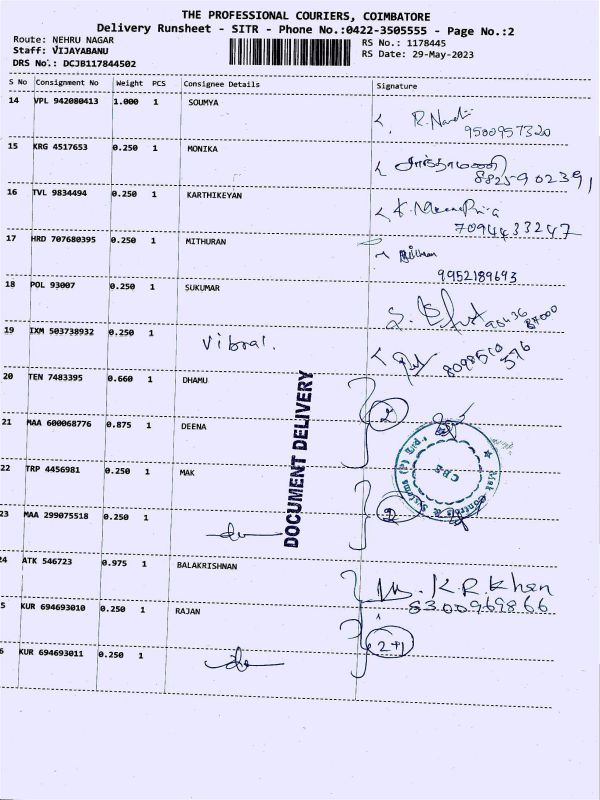 THE PROFESSIONAL COURIERS, COIMBATORE
Delivery Runsheet - SITR - Phone No.:0422-3505555 - Page No.:2
Route: NEHRU NAGAR RS No.: 1178445
Staff: VIJAYABANU RS Date: 29-May-2023
DRS No.: DCJB117844502
S No Consignment No Weight PCS Consignee Details Signature
14 VPL 942080413 1.000 1 SOUMYA
9500957320
15 KRG 4517653 0.250 1 MONIKA சாந்தாமணி
8825902391
16 TVL 9834494 0.250 1 KARTHIKEYAN
7094433247
17 HRD 707680395 0.250 1 MITHURAN
9952189693
18 POL 93007 0.250 1 SUKUMAR
19 IXM 503738932 0.250 1 Vibral.
8098510
20 TEN 7483395 0.660 1 DHAMU
2
21 MAA 600068776 0.875 1 DEENA
DOCUMENT DELIVERY
22 TRP 4456981 0.250 1 MAK
C.B.E
Controls & Systems (P) Ltd.,
23 MAA 299075518 0.250 1 do 2
24 ATK 546723 0.975 1 BALAKRISHNAN
K.R.Khan
5 KUR 694693010 0.250 1 RAJAN 8300969866
2+1
6 KUR 694693011 0.250 1 do